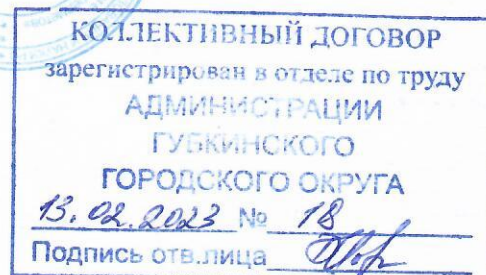 КОЛЛЕКТИВНЫЙ ДОГОВОР
зарегистрирован в отделе по труду
АДМИНИСТРАЦИИ
ГУБКИНСКОГО
ГОРОДСКОГО ОКРУГА
13.02.2023 № 18
Подпись отв.лица